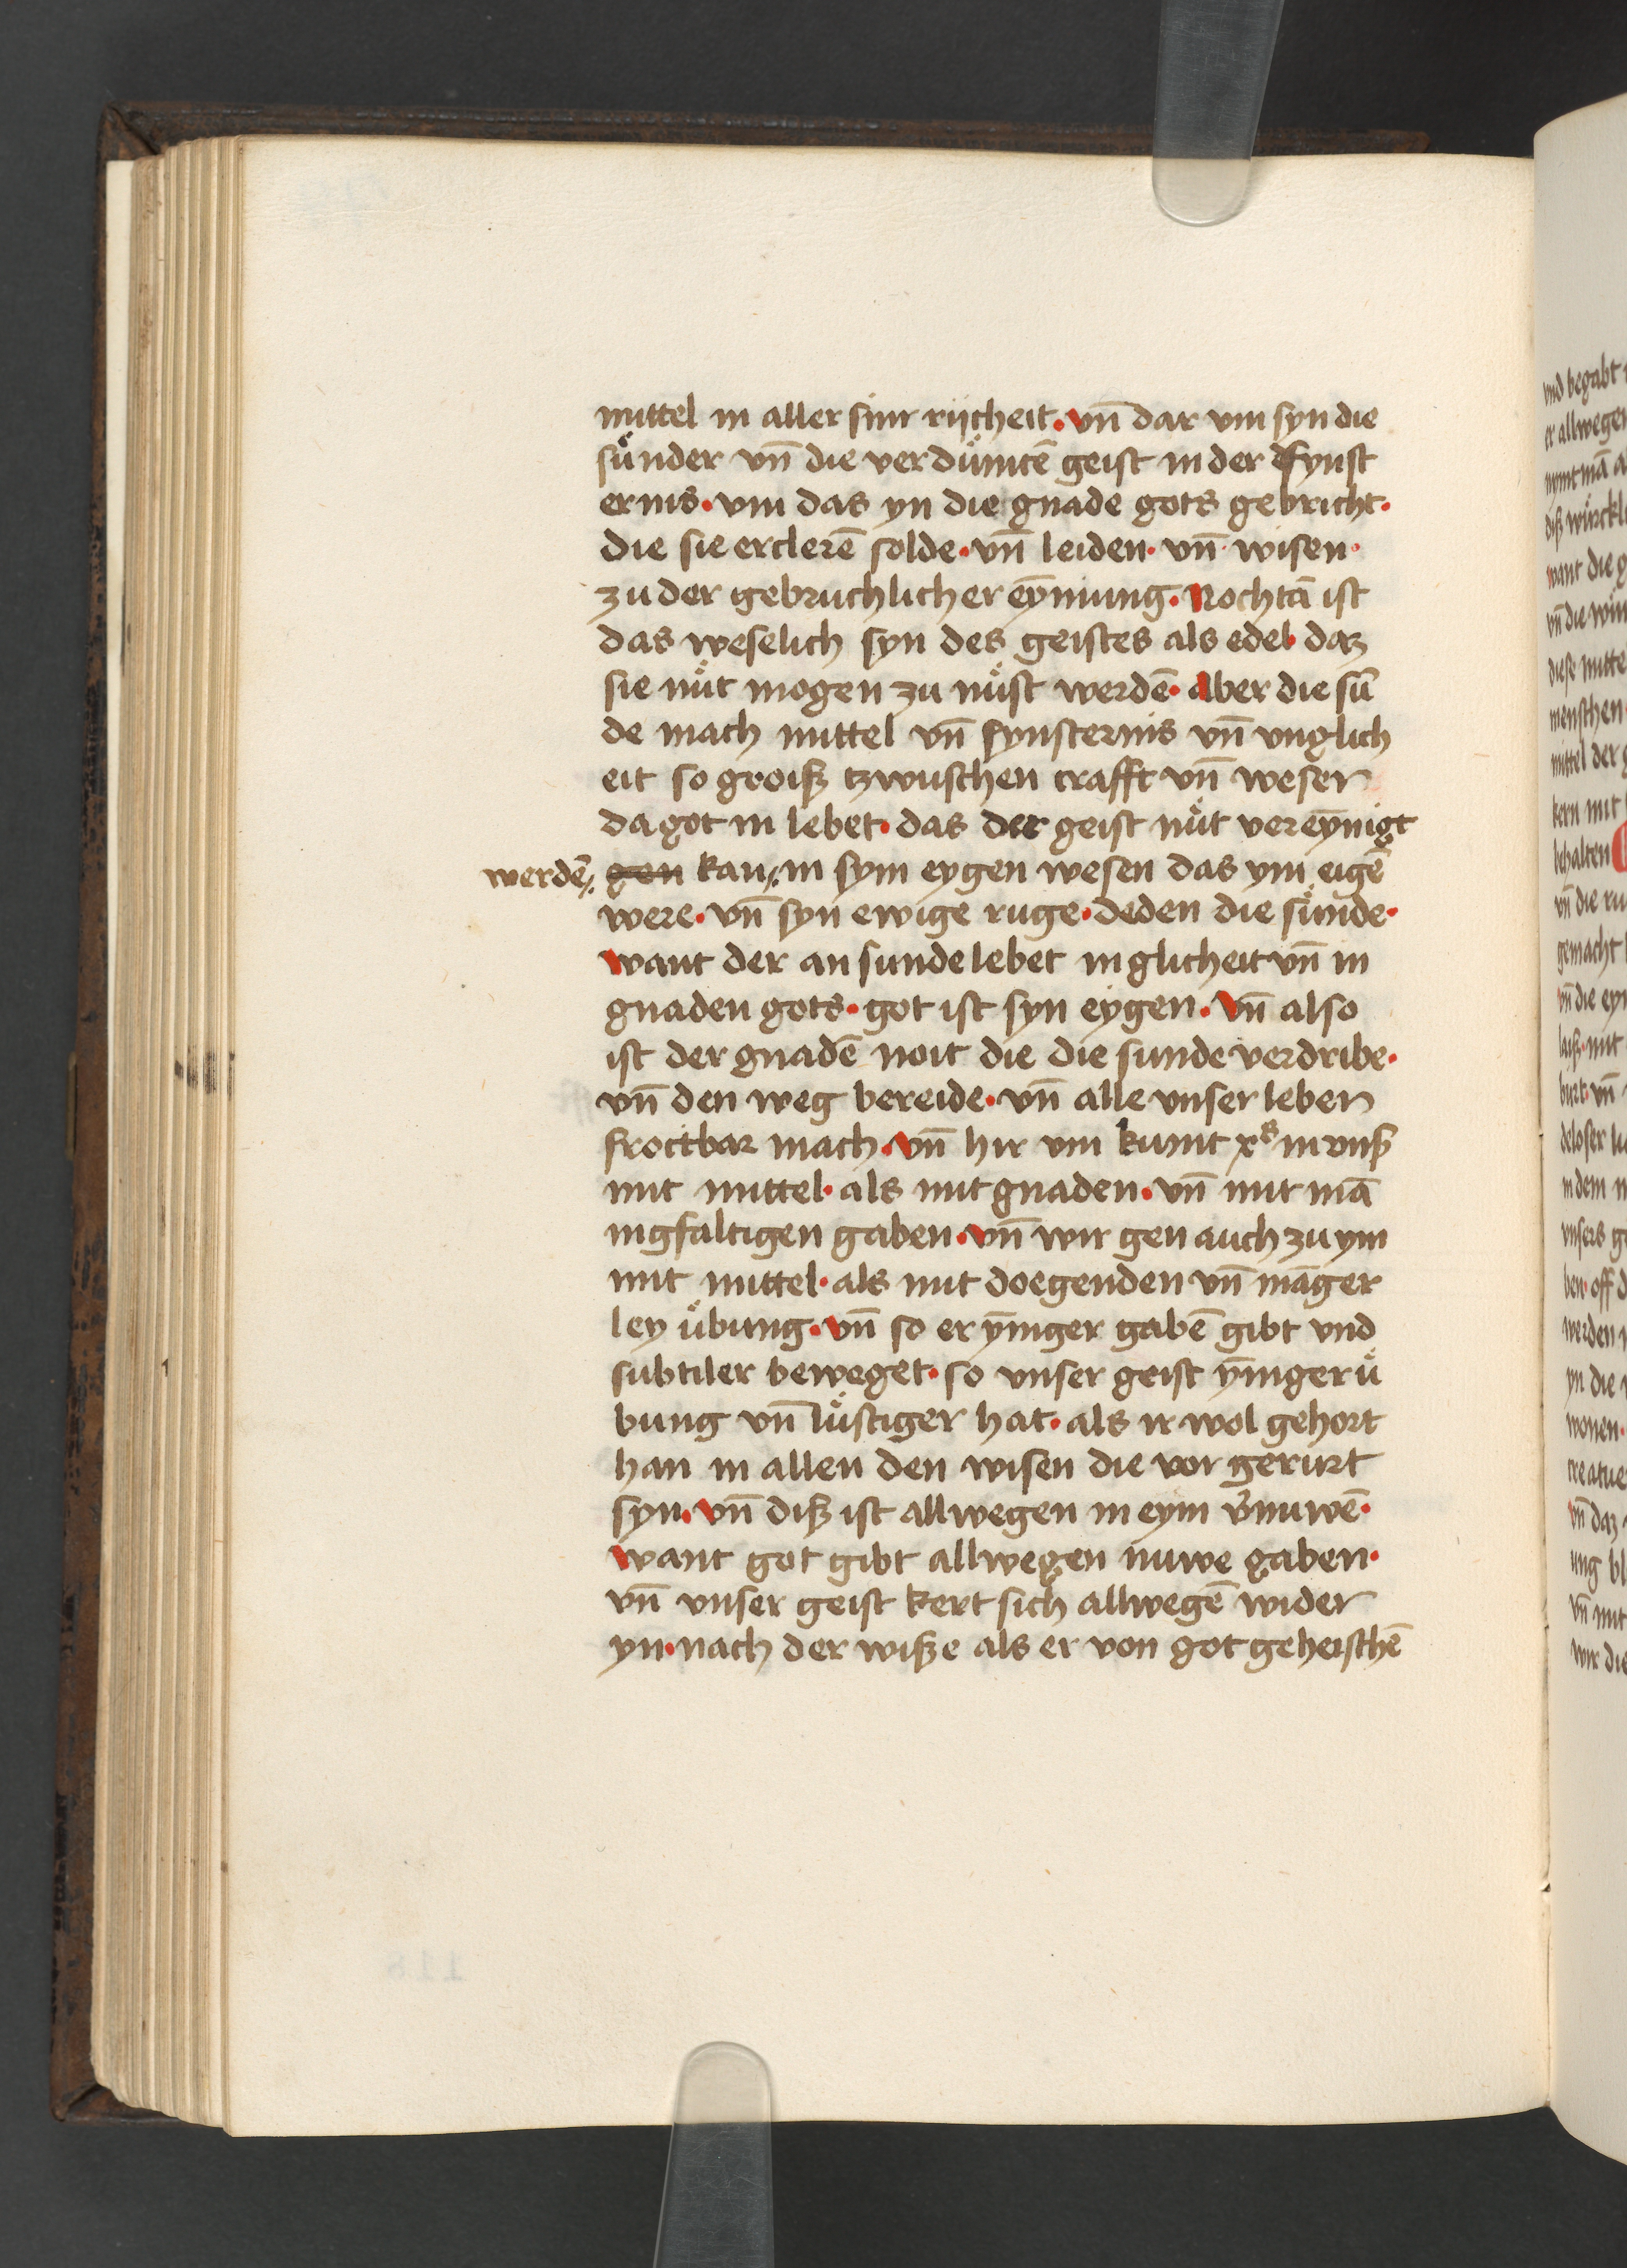 mittel in aller sinr rijcheit · vn̄ dar vm syn die
sůnder vn̄ die verdůmtē geist in der fynst
ernis · vm das yn die gnade gots gebricht ·
die sie erclerē solde · vn̄ leiden · vn̄ wisen ·
zu der gebruchlicher eȳniung · Nochtā ist
das weselich syn des geistes als edel · daz
sie nůt mogen zu nůst werdē · aber die sū
de mach mittel vn̄ fynsternis vn̄ vnglich
eit so groiß tzwuschen crafft vn̄ wesen
da got in lebet · das der geist nůt vereȳnigt
werdē
gen kan in sym eygen wesen das ym eigē
were · vn̄ syn ewige ruge · deden die sůnde ·
want der an sunde lebet in glicheit vn̄ in
gnaden gots · got ist syn eygen · vn̄ also
ist der gnadē noit die die sunde verdribe ·
vn̄ den weg bereide · vn̄ alle vnser leben
froctbar mach · vn̄ hir vm kumt xs in vnß
mit mittel · als mit gnaden · vn̄ mit mā
ingfaltigen gaben · vn̄ wir gen auch zu ym
mit mittel · als mit doegenden vn̄ māger
ley ůbung · vn̄ so er ȳniger gabē gibt vnd
subtiler beweget · so vnser geist ȳniger ů
bung vn̄ lůstiger hat · als ir wol gehort
han in allen den wisen die vor gerurt
syn · vn̄ diß ist allwegen in eym v̄nuwē ·
want got gibt allwegen nuwe gaben ·
vn̄ vnser geist kert sich allwegē wider
yn · nach der wiße als er von got geheischē
vnd begabt
er allwegen
diß würckl
want die g
menschen
mittel der
kern mit
behalten
gemacht
in dem
werden
yn die
wonen
vn̄ daz
vn̄ mit
wir die